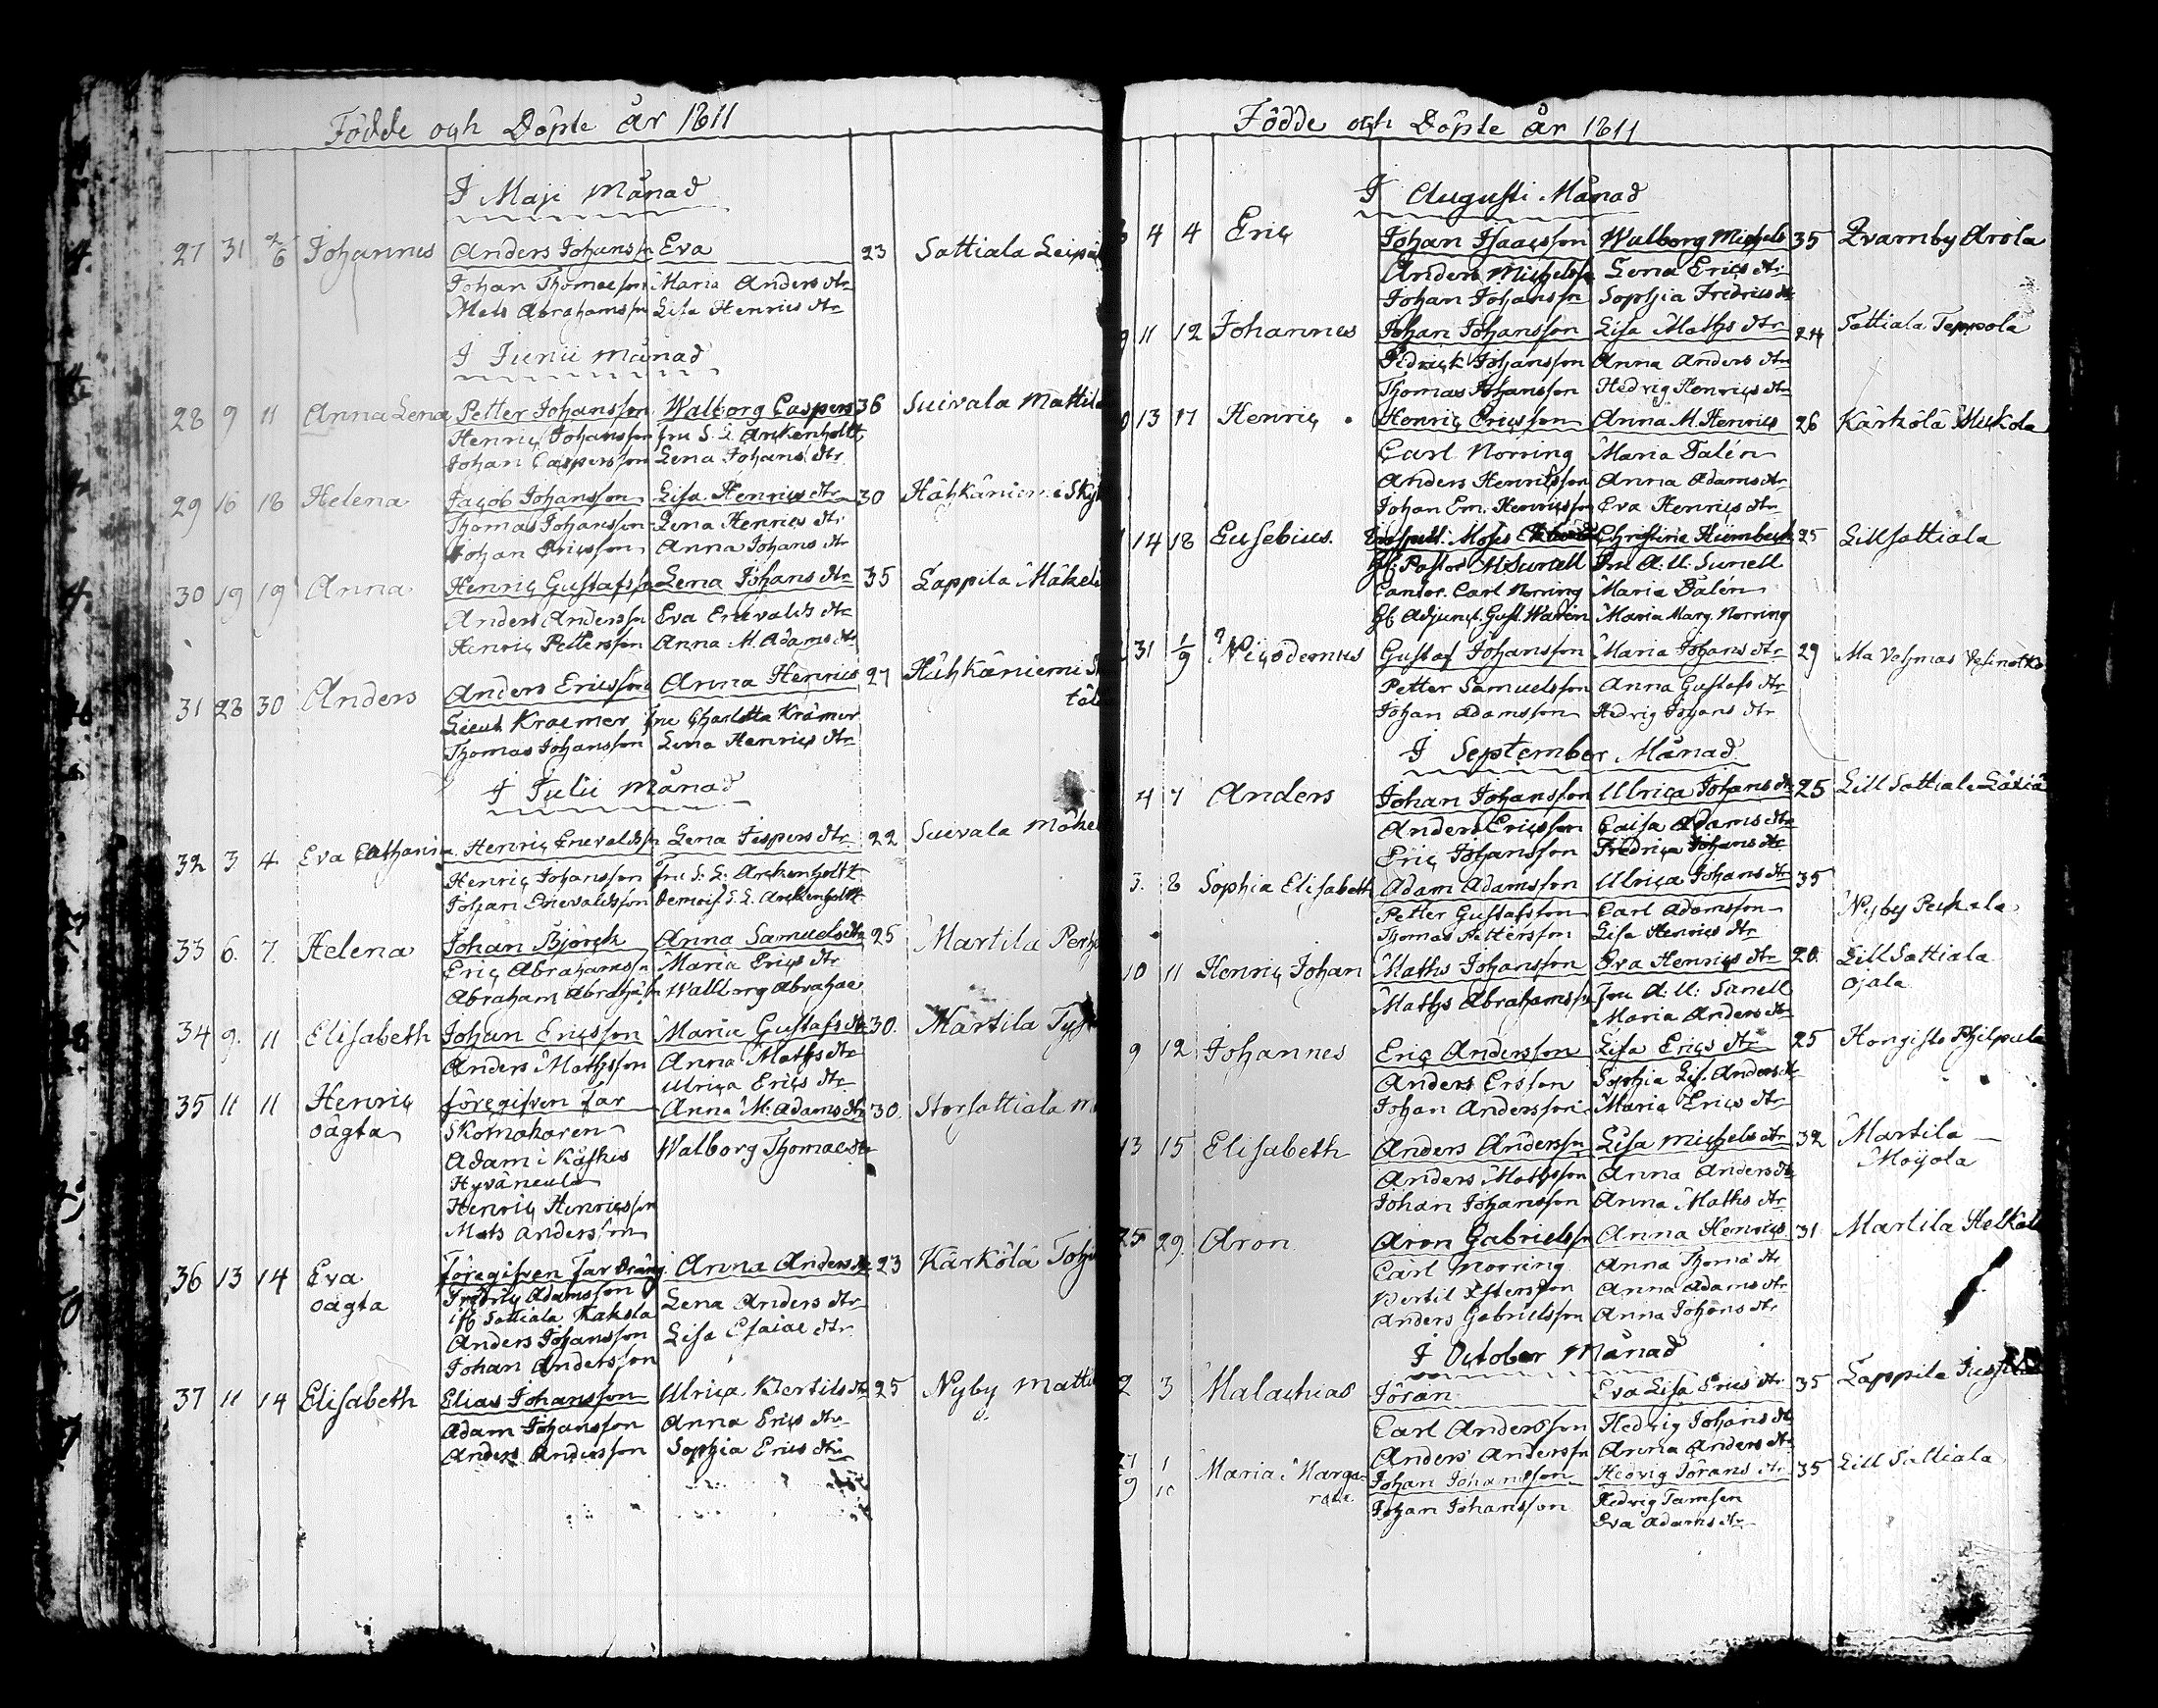 Födde och Döpte år 1811
I Maji Månad
27 31 2/6 Johannes Anders Johansson Eva 23 Sattiala
Johan Thomasson Maria Anders dtr
Mats Abrahamsson Lisa Henrics dtr
I Junii Månad
28 9 11 Anna Lena Petter Johansson Walborg Caspers 36 Suivala Mattila
Henric Johansson fru S. L. Arckenholtz
Johan Caspersson Lena Johans dtr
29 16 18 Helena Jacob Johansson Lisa Henrics dtr 30 Hähkäniemi
Thomas Johansson Lena Henrics dtr
Johan Ericsson Anna Johans dtr
30 19 19 Anna Henric Gustafsson Lena Johans dtr 35 Lappila
Anders Andersson Eva Enevalds dtr
Henric Pettersson Anna M. Adams dtr
31 28 30 Anders Anders Ericsson Anna Henrics 27 Hähkäniemi
Lieut Kraemer fru Charlotta Krämer
Thomas Johansson Lena Henrics dtr
I Julii Månad
32 3 4 Eva Catharina Henric Enevaldsson Lena Jespers dtr 22 Suivala
Henric Johansson fru S. L. Arckenholtz
Johan Enevaldsson Demois S. L. Arckenholtz
33 6. 7. Helena Johan Björck Anna Samuels dtr 25 Martila
Eric Abrahamsson Maria Erics dtr
Abraham Abrahamsson Wallborg Abrahae
34 9. 11 Elisabeth Johan Ericsson Maria Gustafs dtr 30. Martila
Anders Mathsson Anna Maths dtr
Ulrica Erics dtr
35 11 11 Henric föregifven far Anna M. Adams dtr 30. Storsattiala
oägta Skomakaren
Adam i Käskis Walborg Thomae dtr
Hyväneula
Henric Henricsson
Mats Andersson
36 13 14 Eva Föregifven far dräng. Anna Anders dtr 23 Kärkölä
oägta Fredric Adamsson Lena Anders dtr
Sattiala Kaksla
Anders Johansson Lisa Esaiae dtr
Johan Andersson
37 11 14 Elisabeth Elias Johansson Ulrica Bertils dtr 25 Nyby
Adam Johansson Anna Erics dtr
Anders Andersson Sophia Erics dtr
Födde och Döpte år 1811
I Augusti Månad
4 4 Eric Johan Isaacsson Walborg Michels 35 Qvarnby Arola
Anders Michelsson Lena Erics dtr
Johan Johansson Sophia Fredrics dtr
11 12 Johannes Johan Johansson Lisa Maths dtr 24 Sattiala Teppola
Fedrick Johansson Anna Anders dtr
Thomas Johansson Hedvig Henrics dtr
13 17 Henric Henric Ericsson Anna M. Henrics 26 Kärkölä Huckola
Carl Norring Maria Dalén
Anders Henricsson Anna Adams dtr
Johan Em. Henricsson Eva Henrics dtr
14 18 Eusebius. Moses Christina 25 Lillsattiala
Pastor M Sunell Fru A. U. Sunell
Cantor. Carl Norring Maria Dalén
Adjunct. Gust. Waren Maria Marg. Norring
31 1/9 Nicodemus Gustaf Johansson Maria Johans dtr 29
Petter Samuelsson Anna Gustafs dtr
Johan Adamsson Hedvig Johans dtr
I September Månad
4 7 Anders Johan Johansson Ulrica Johans dtr 25 Lill Sattiala
Anders Ericsson Caisa Adams dtr
Eric Johansson Fredrica Johans dtr
3. 8 Sophia Elisabeth Adam Adamsson Ulrica Johans dtr 35
Petter Gustafsson Carl Adamsson Nyby Peukala
Thomas Pettersson Lisa Henrics dtr
10 11 Henric Johan Maths Johansson Eva Henrics dtr 20. Lill Sattiala
Maths Abrahamsson Fru A: U: Sunell Ojala
Maria Anders dtr
9 12 Johannes Eric Andersson Lisa Erics dtr 25 Hongisto Philpula
Anders Ersson Sophia Lis. Anders dtr
Johan Andersson Maria Erics dtr
13 15 Elisabeth Anders Andersson Lisa Michels dtr 32 Martila
Anders Mathsson Anna Anders dtr Moijola
Johan Johansson Anna Maths dtr
25 29. Aron Aron Gabrielsson Anna Henrics 31 Martila
Carl Norring Anna Thoma dtr
Bertil Anna Adams dtr
Anders Gabrielsson Anna Johans dtr
I October Månad
2 3 Malachias Jöran Eva Lisa Erics dtr 35 Lappila
Carl Andersson Hedvig Johans dtr
Anders Andersson Anna Anders dtr
9 10 Maria Margareta Johan Johansson Hedvig Jörans dtr 35 Lill Sattiala
Johan Johansson Hedvig Tamsen
Eva Adams dtr